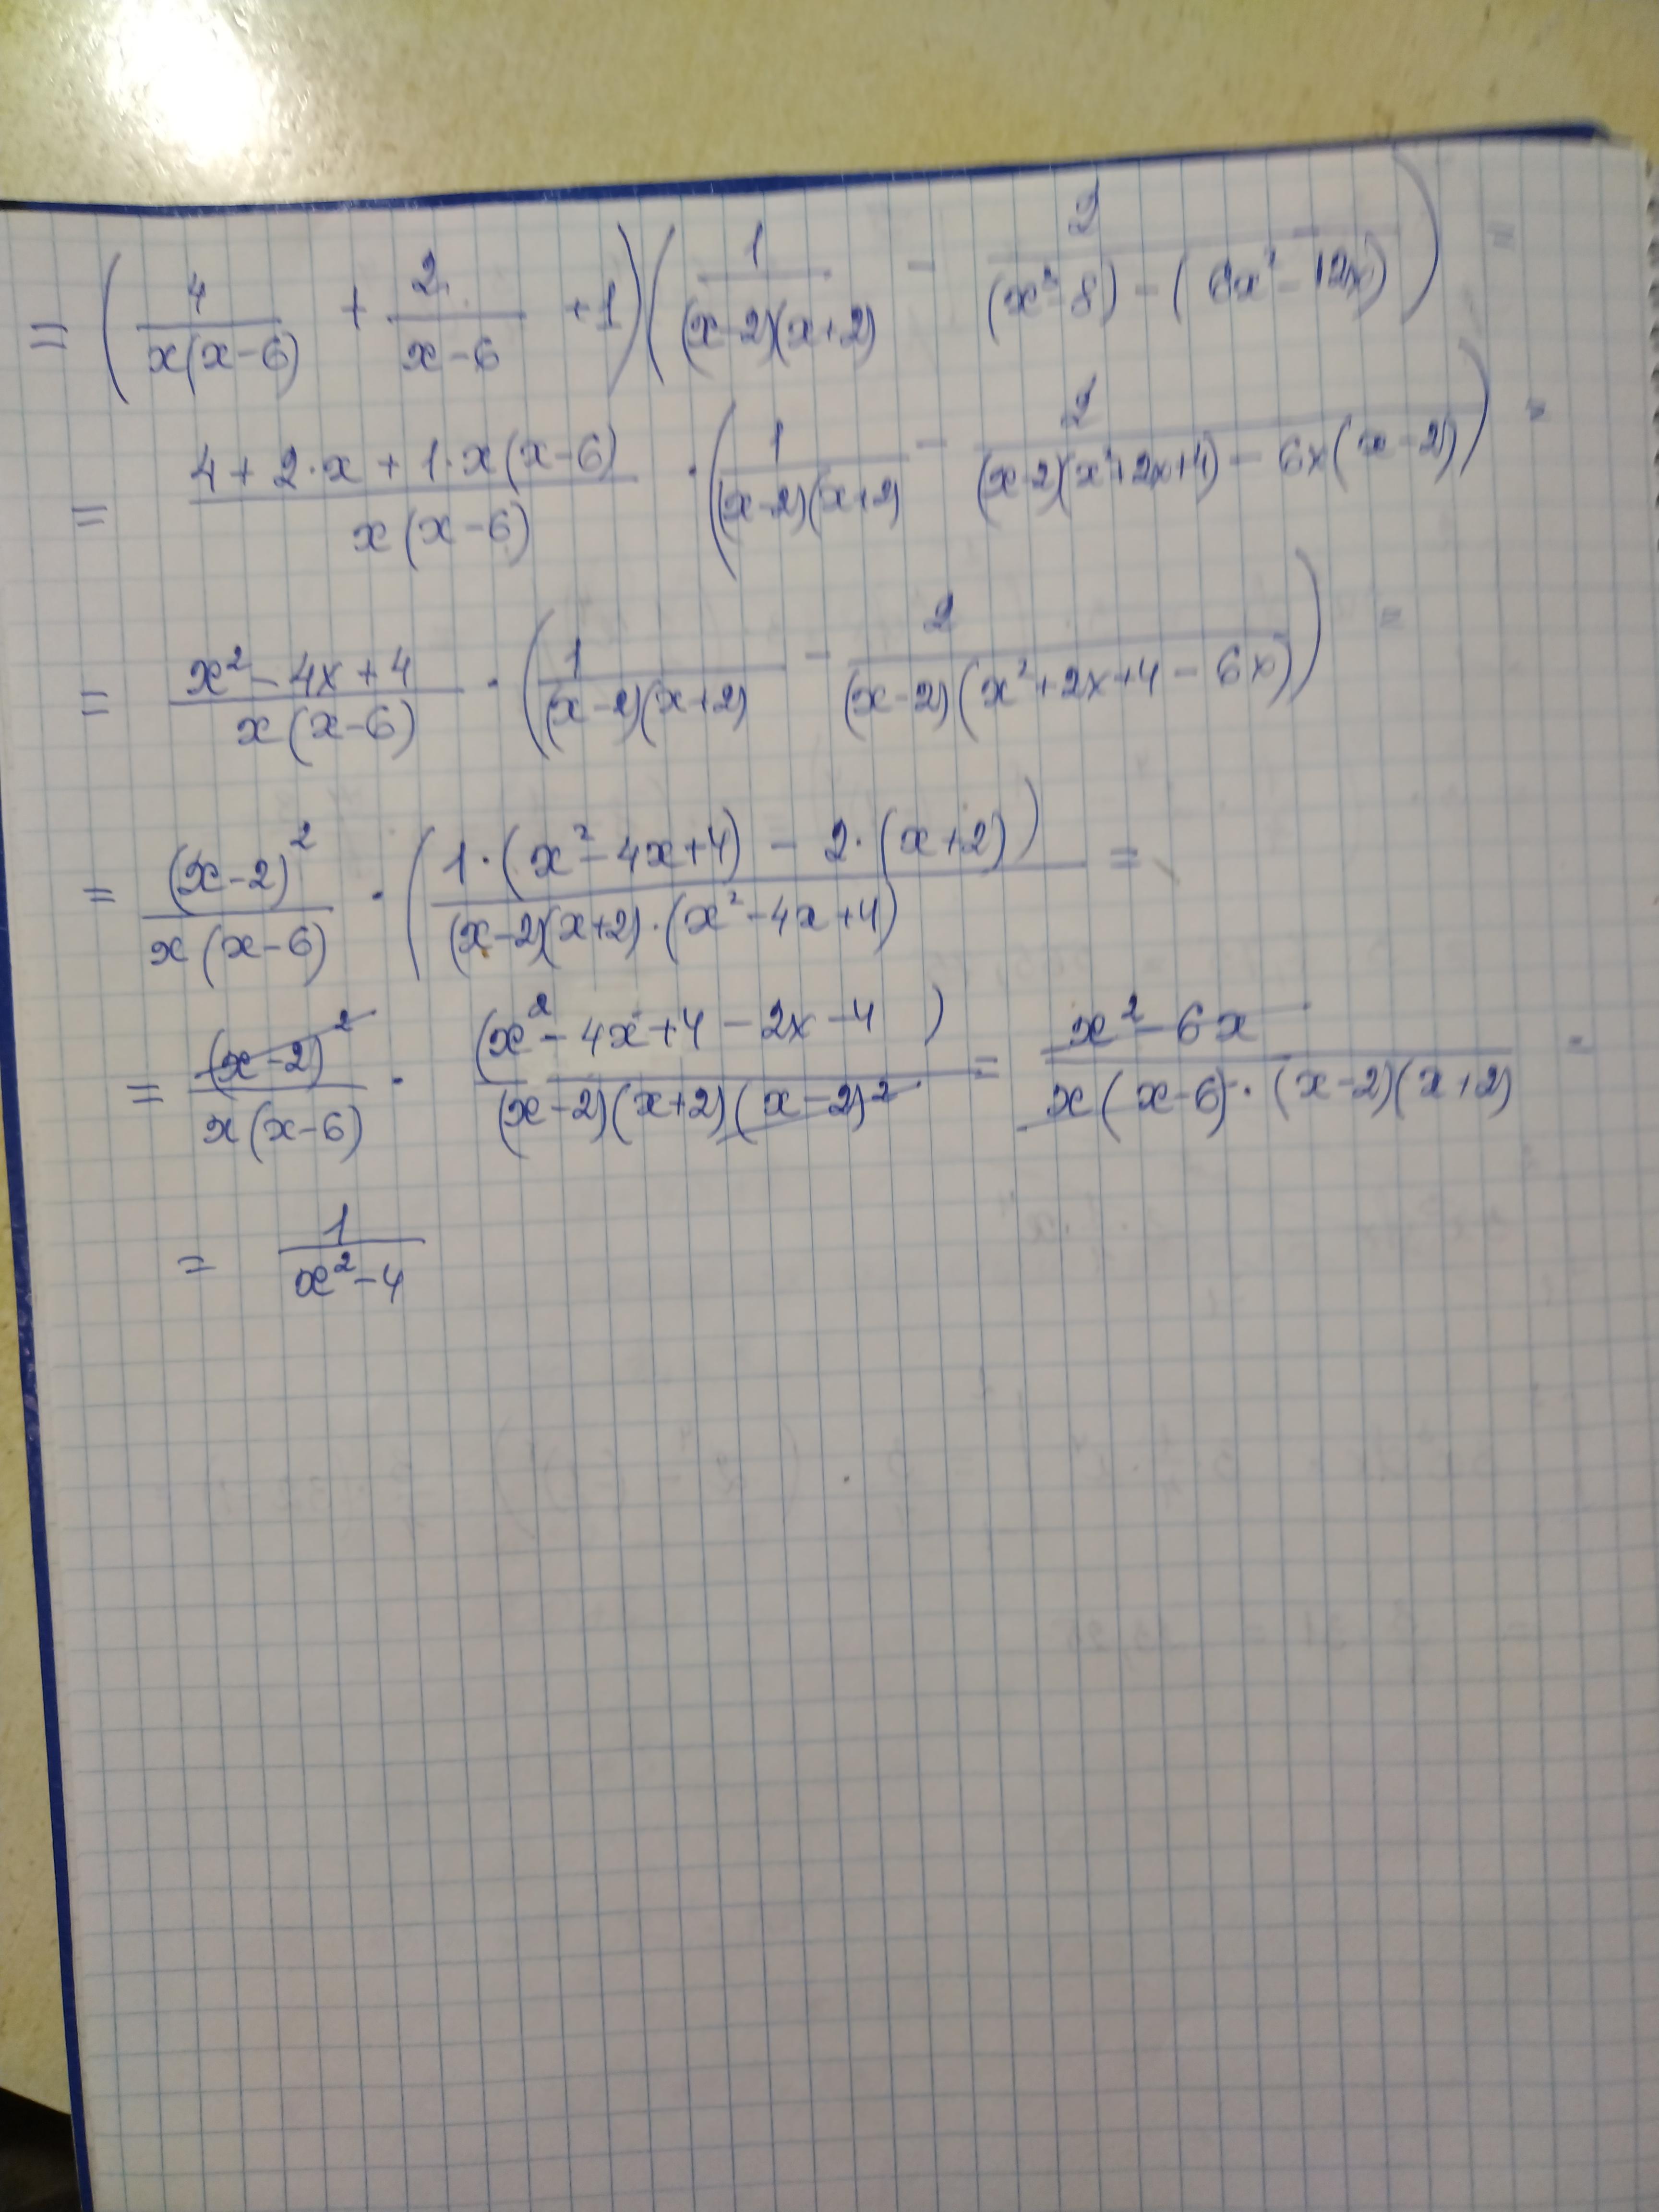 = (4/(x(x-6)) + 2/(x-6) + 1)(1/((x-2)(x+2)) - 2/((x³-8)-(6x²-12x))) =
= (4+2·x+1·x(x-6))/(x(x-6)) · (1/((x-2)(x+2)) - 2/((x-2)(x²+2x+4)-6x(x-2))) =
= (x²-4x+4)/(x(x-6)) · (1/((x-2)(x+2)) - 2/((x-2)(x²+2x+4-6x))) =
= (x-2)²/(x(x-6)) · ((1·(x²-4x+4)-2·(x+2))/((x-2)(x+2)·(x²-4x+4)) =
= (x-2)²/(x(x-6)) · (x²-4x+4-2x-4)/((x-2)(x+2)(x-2)²) = (x²-6x)/(x(x-6)·(x-2)(x+2)) =
= 1/(x²-4)